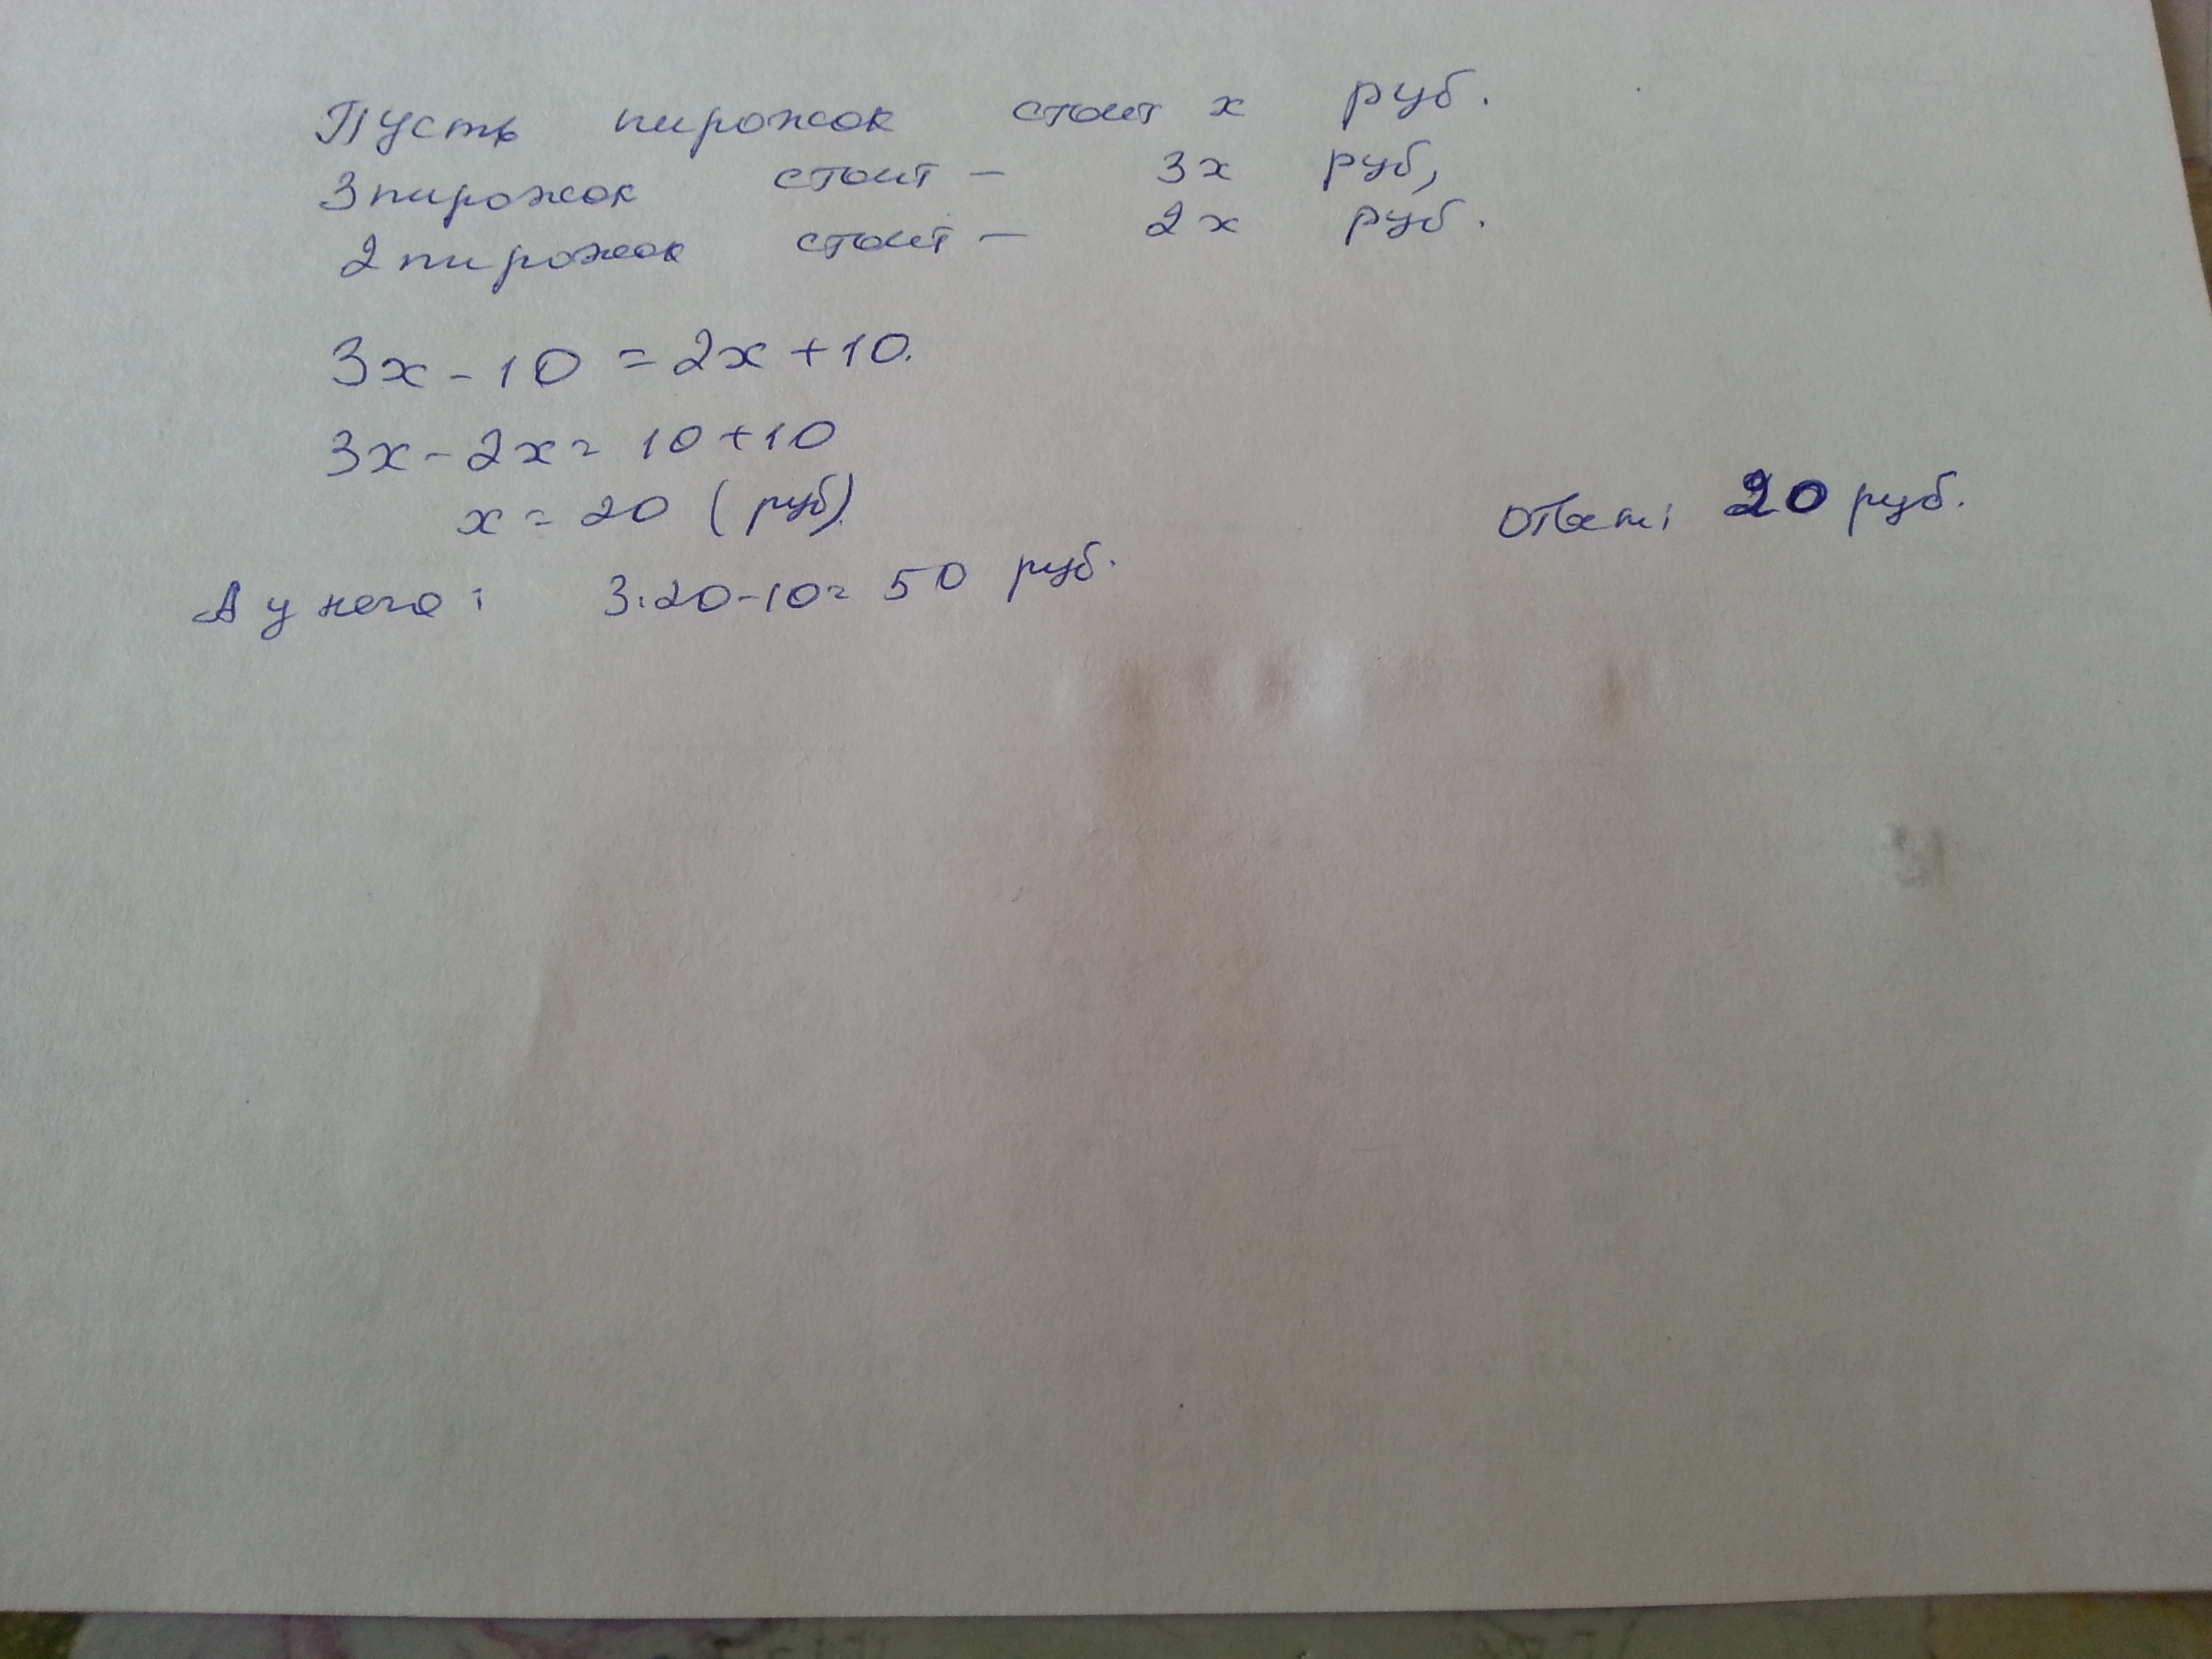 Пусть пирожок стоит x руб.
3 пирожок стоит – 3x руб,
2 пирожок стоит – 2x руб.
3x - 10 = 2x + 10.
3x - 2x = 10 + 10
x = 20 (руб).
Ответ: 20 руб.
А у него: 3·20-10= 50 руб.